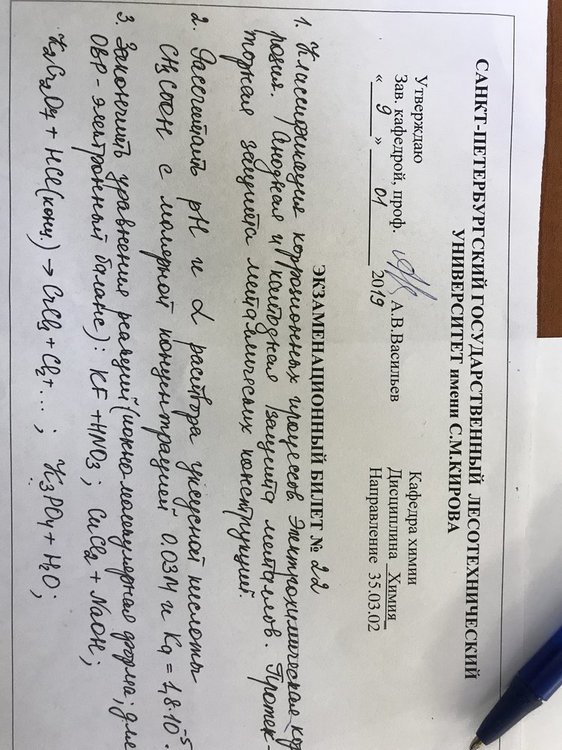 САНКТ-ПЕТЕРБУРГСКИЙ ГОСУДАРСТВЕННЫЙ ЛЕСОТЕХНИЧЕСКИЙ
УНИВЕРСИТЕТ имени С.М.КИРОВА
Утверждаю
Зав. кафедрой, проф. А.В.Васильев
« 9 » 01 2019
Кафедра химии
Дисциплина Химия
Направление 35.03.02
ЭКЗАМЕНАЦИОННЫЙ БИЛЕТ № 22
1. Классификация коррозионных процессов. Электрохимическая кор
розия. Анодная и катодная защита металлов. Протек-
торная защита металлических конструкций.
2. Рассчитать pH и α раствора уксусной кислоты
CH3COOH с молярной концентрацией 0.03М и Ka = 1,8·10⁻⁵.
3. Закончить уравнения реакций (ионно-молекулярная форма; для
ОВР - электронный баланс): KF + HNO3; CuCl2 + NaOH;
K2Cr2O7 + HCl(конц.) → CrCl3 + Cl2 + ... ; K3PO4 + H2O;